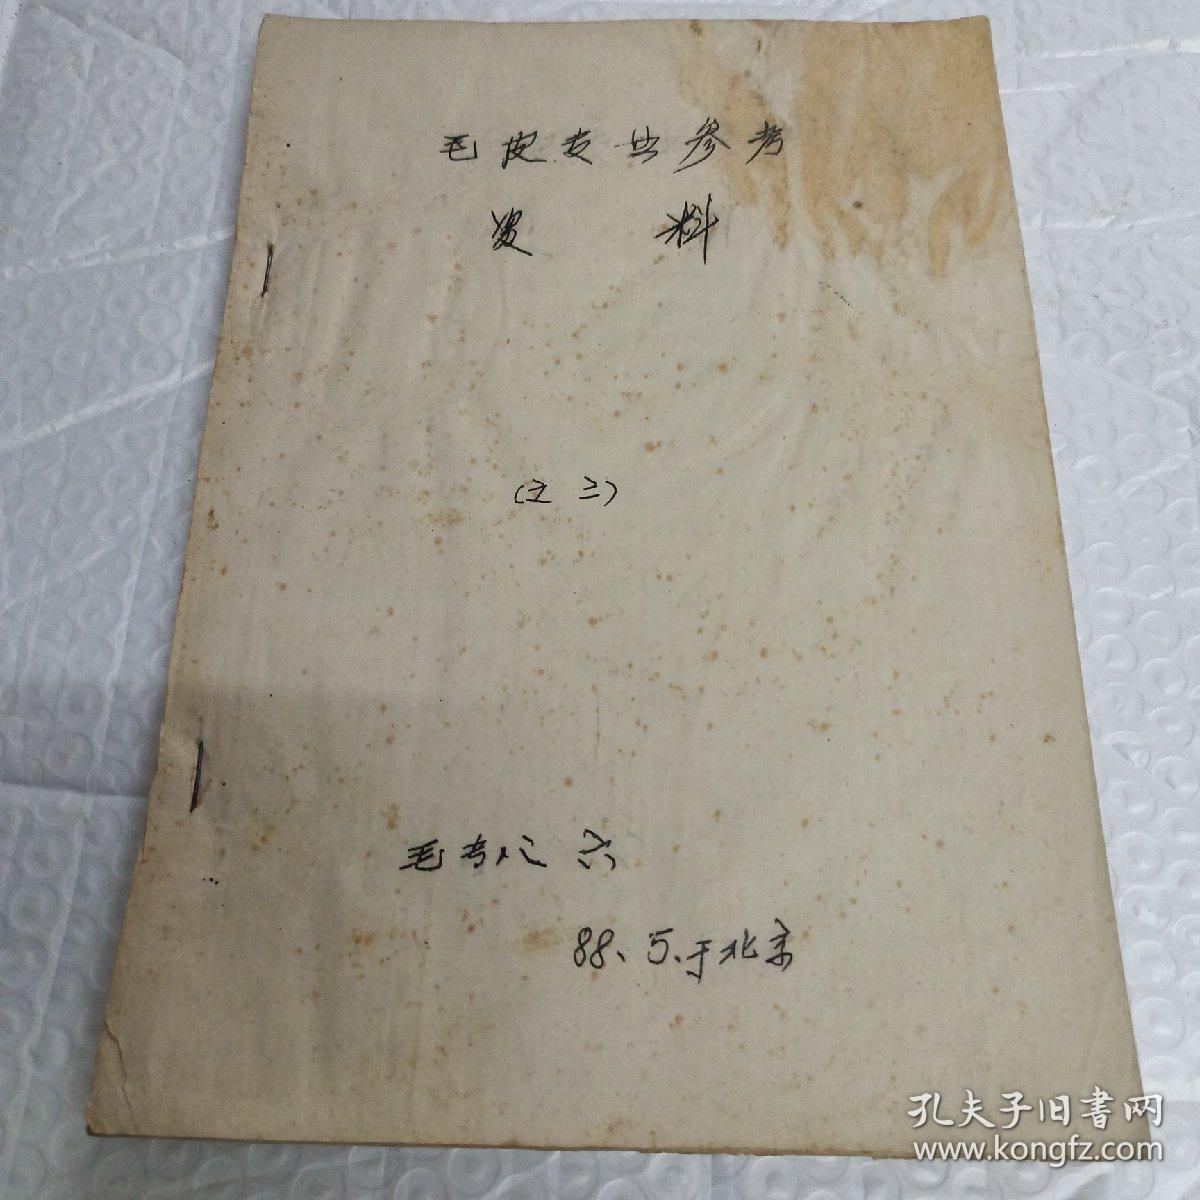 毛皮专业参考
资料
(之三)
毛专八六
88、5、于北京
孔夫子旧書网
www.kongfz.com